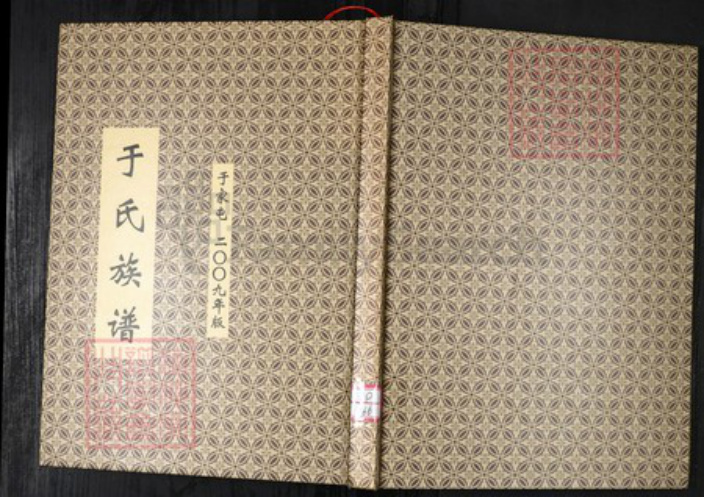 于氏族谱
于家屯 二〇〇九年版